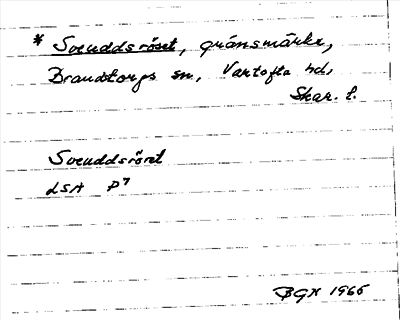 * Svenuddsröset, gränsmärke,
Brandstorps sn., Vartofta hd.,
Skar. l.
Svenuddsröret
LSA P7
BGN 1966